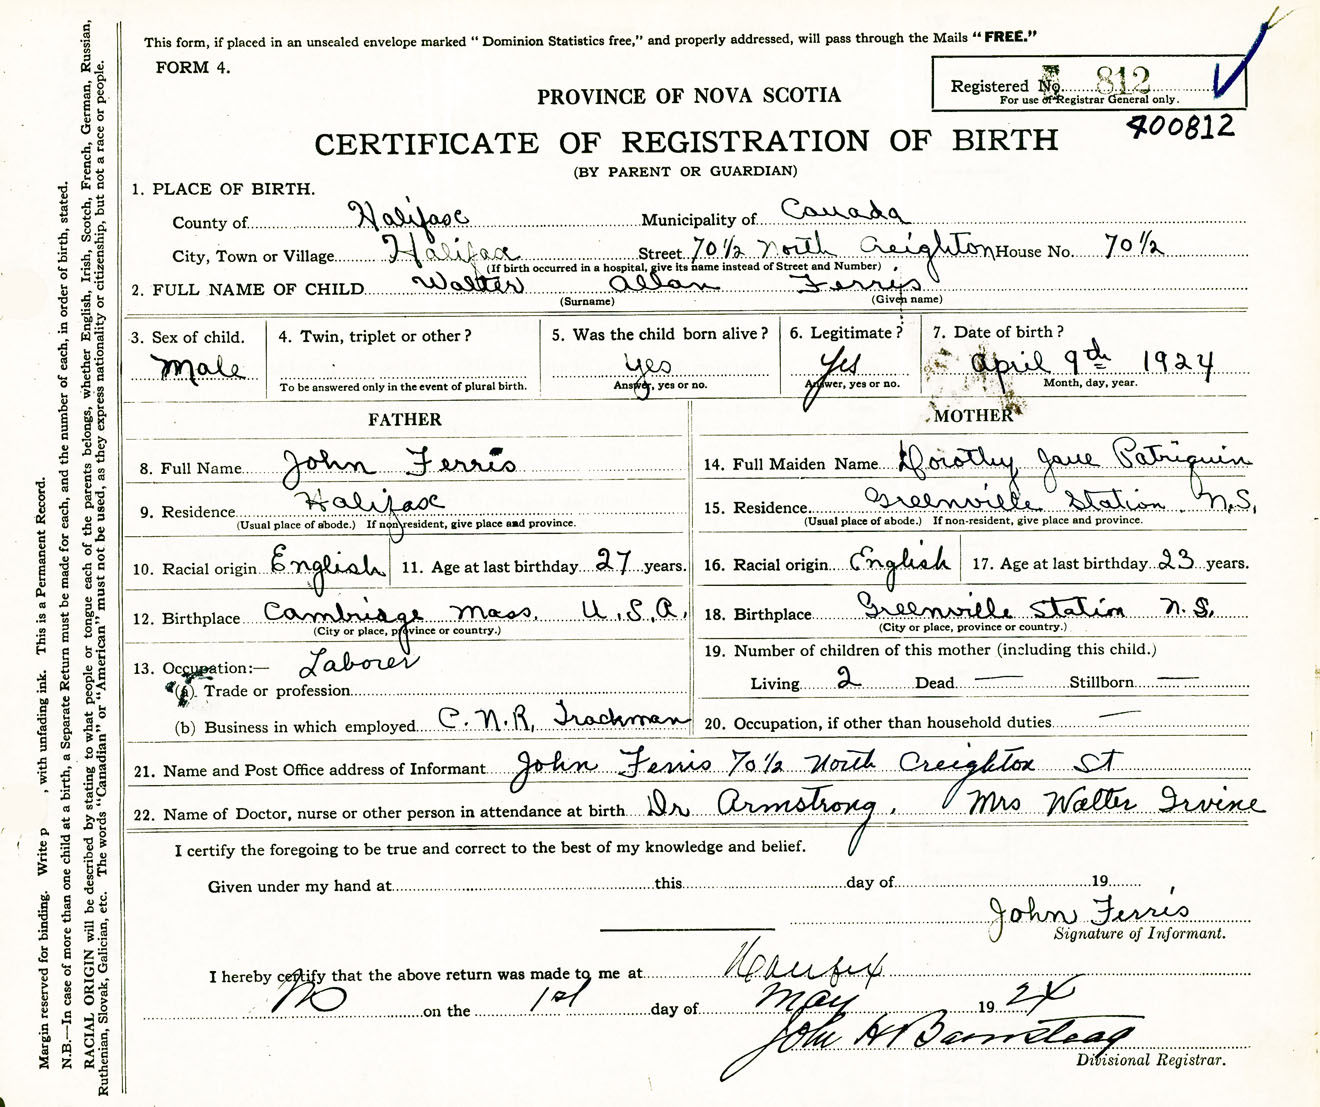 This form, if placed in an unsealed envelope marked " Dominion Statistics free," and properly addressed, will pass through the Mails " FREE."
FORM 4.
Registered No. 812
For use of Registrar General only.
400812
PROVINCE OF NOVA SCOTIA
CERTIFICATE OF REGISTRATION OF BIRTH
(BY PARENT OR GUARDIAN)
1. PLACE OF BIRTH.
County of Halifax Municipality of Canada
City, Town or Village Halifax Street 70½ North Creighton House No. 70½
(If birth occurred in a hospital, give its name instead of Street and Number)
2. FULL NAME OF CHILD Walter Allan Ferris
(Surname) (Given name)
3. Sex of child. 4. Twin, triplet or other? 5. Was the child born alive? 6. Legitimate? 7. Date of birth?
Male Yes Yes April 9th 1924
To be answered only in the event of plural birth. Answer, yes or no. Answer, yes or no. Month, day, year.
FATHER MOTHER
8. Full Name John Ferris 14. Full Maiden Name Dorothy Jane Patriquin
9. Residence Halifax 15. Residence Greenville Station N.S.
(Usual place of abode.) If non resident, give place and province. (Usual place of abode.) If non-resident, give place and province.
10. Racial origin English 11. Age at last birthday 27 years. 16. Racial origin English 17. Age at last birthday 23 years.
12. Birthplace Cambridge Mass. U.S.A. 18. Birthplace Greenville Station N.S.
(City or place, province or country.) (City or place, province or country.)
13. Occupation:— Laborer 19. Number of children of this mother (including this child.)
(a). Trade or profession Living 2 Dead — Stillborn —
(b) Business in which employed C.N.R. Trackman 20. Occupation, if other than household duties —
21. Name and Post Office address of Informant John Ferris 70½ North Creighton St
22. Name of Doctor, nurse or other person in attendance at birth Dr Armstrong. Mrs Walter Irvine
I certify the foregoing to be true and correct to the best of my knowledge and belief.
Given under my hand at this day of 19
John Ferris
Signature of Informant.
I hereby certify that the above return was made to me at Halifax
on the 1st day of May 1924
John H
Divisional Registrar.
Margin reserved for binding. Write p , with unfading ink. This is a Permanent Record.
N.B.—In case of more than one child at a birth, a Separate Return must be made for each, and the number of each, in order of birth, stated.
RACIAL ORIGIN will be described by stating to what people or tongue each of the parents belongs, whether English, Irish, Scotch, French, German, Russian,
Ruthenian, Slovak, Galician, etc. The words "Canadian" or "American" must not be used, as they express nationality or citizenship, but not a race or people.